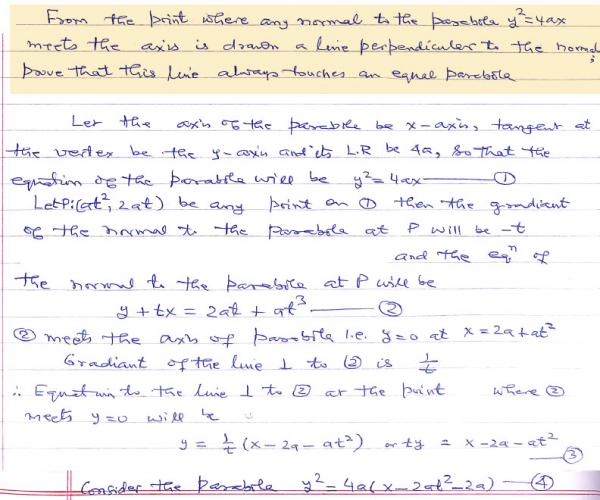 From the point where any normal to the parabola y²=4ax
meets the axis is drawn a line perpendicular to the normal;
prove that this line always touches an equal parabola
Let the axis of the parabola be x-axis, tangent at
the vertex be the y-axis and its L.R be 4a, so that the
equation of the parabola will be y²=4ax ——— ①
Let P:(at², 2at) be any point on ① then the gradient
of the normal to the parabola at P will be -t
and the eqⁿ of
the normal to the parabola at P will be
y + tx = 2at + at³ ——— ②
② meets the axis of parabola i.e. y=0 at x=2a+at²
Gradiant of the line ⊥ to ② is 1/t
∴ Equation to the line ⊥ to ② at the point where ②
meets y=0 will be
y = 1/t (x-2a-at²) or ty = x-2a-at²
③
Consider the Parabola y²=4a(x-2at²-2a) — ④